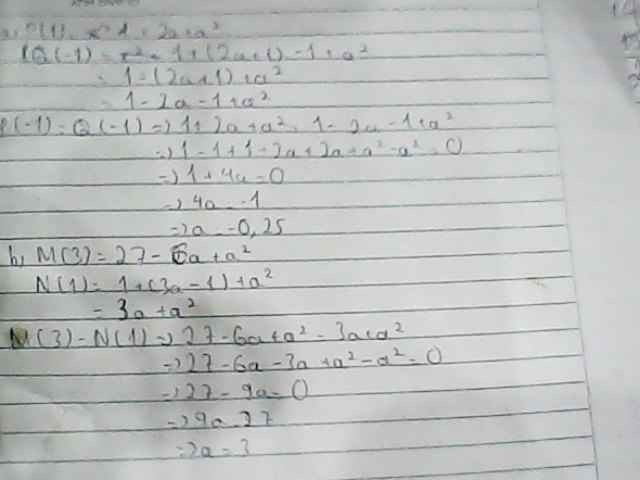 a, P(1) = x² 1 + 2a + a²
Q(-1) = x² = 1 + (2a+1) - 1 + a²
= 1 - (2a+1) + a²
= 1 - 2a - 1 + a²
P(-1) = Q(-1) => 1 + 2a + a² = 1 - 2a - 1 + a²
=> 1 - 1 + 1 + 2a + 2a + a² - a² = 0
=> 1 + 4a = 0
=> 4a = -1
=> a = -0,25
b, M(3) = 27 - 6a + a²
N(1) = 1 + (3a - 1) + a²
= 3a + a²
M(3) = N(1) => 27 - 6a + a² = 3a + a²
=> 27 - 6a - 3a + a² - a² = 0
=> 27 - 9a = 0
=> 9a = 27
=> a = 3